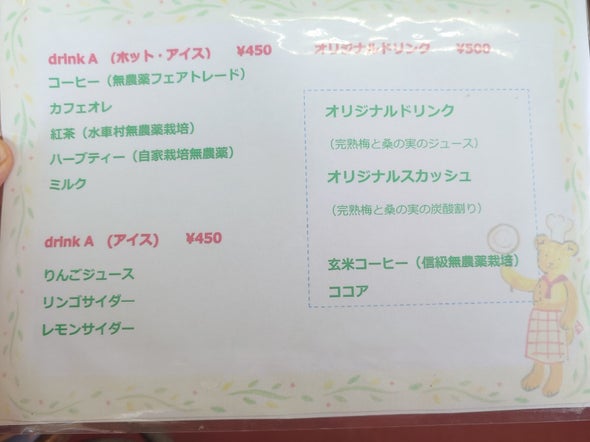 drink A （ホット・アイス） ¥450
コーヒー（無農薬フェアトレード）
カフェオレ
紅茶（水車村無農薬栽培）
ハーブティー（自家栽培無農薬）
ミルク
drink A （アイス） ¥450
りんごジュース
リンゴサイダー
レモンサイダー
オリジナルドリンク ¥500
オリジナルドリンク
（完熟梅と桑の実のジュース）
オリジナルスカッシュ
（完熟梅と桑の実の炭酸割り）
玄米コーヒー（信級無農薬栽培）
ココア